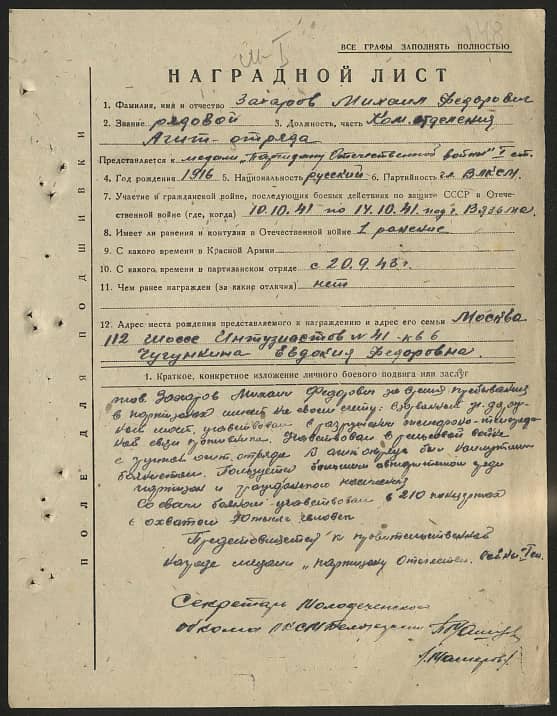 148
III-I
ВСЕ ГРАФЫ ЗАПОЛНЯТЬ ПОЛНОСТЬЮ
НАГРАДНОЙ ЛИСТ
1. Фамилия, имя и отчество Захаров Михаил Федорович
2. Звание рядовой 3. Должность, часть Ком. отделения
Агит-отряда
Представляется к медали „Партизану Отечественной войны" I ст.
4. Год рождения 1916 5. Национальность русский 6. Партийность чл ВЛКСМ
7. Участие в гражданской войне, последующих боевых действиях по защите СССР и Отече-
ственной войне (где, когда) 10.10.41 по 14.10.41 под г. Вязьма
8. Имеет ли ранения и контузии в Отечественной войне 1 ранение
9. С какого времени в Красной Армии
10. С какого времени в партизанском отряде с 20.9.43г.
11. Чем ранее награжден (за какие отличия) нет
12. Адрес места рождения представляемого к награждению и адрес его семьи Москва
112 шоссе Интузиастов №41-кв 6
Чугункина Евдокия Федоровна
1. Краткое, конкретное изложение личного боевого подвига или заслуг
тов. Захаров Михаил Федорович за время пребывания
в партизанах имеет на своем счету:
мост, участвовал в разрушении
связи противника. Участвовал в рельсовой войне
с группой агит. отряда. В
Пользуется большим авторитетом среди
партизан и гражданского населения
участвовал в 210
с охватом человек
Представляется к правительственной
награде медали „партизану Отечествен. войны" I ст.
Секретарь Молодеченского
обкома ЛКСМ Белоруссии
ПОЛЕ ДЛЯ ПОДШИВКИ